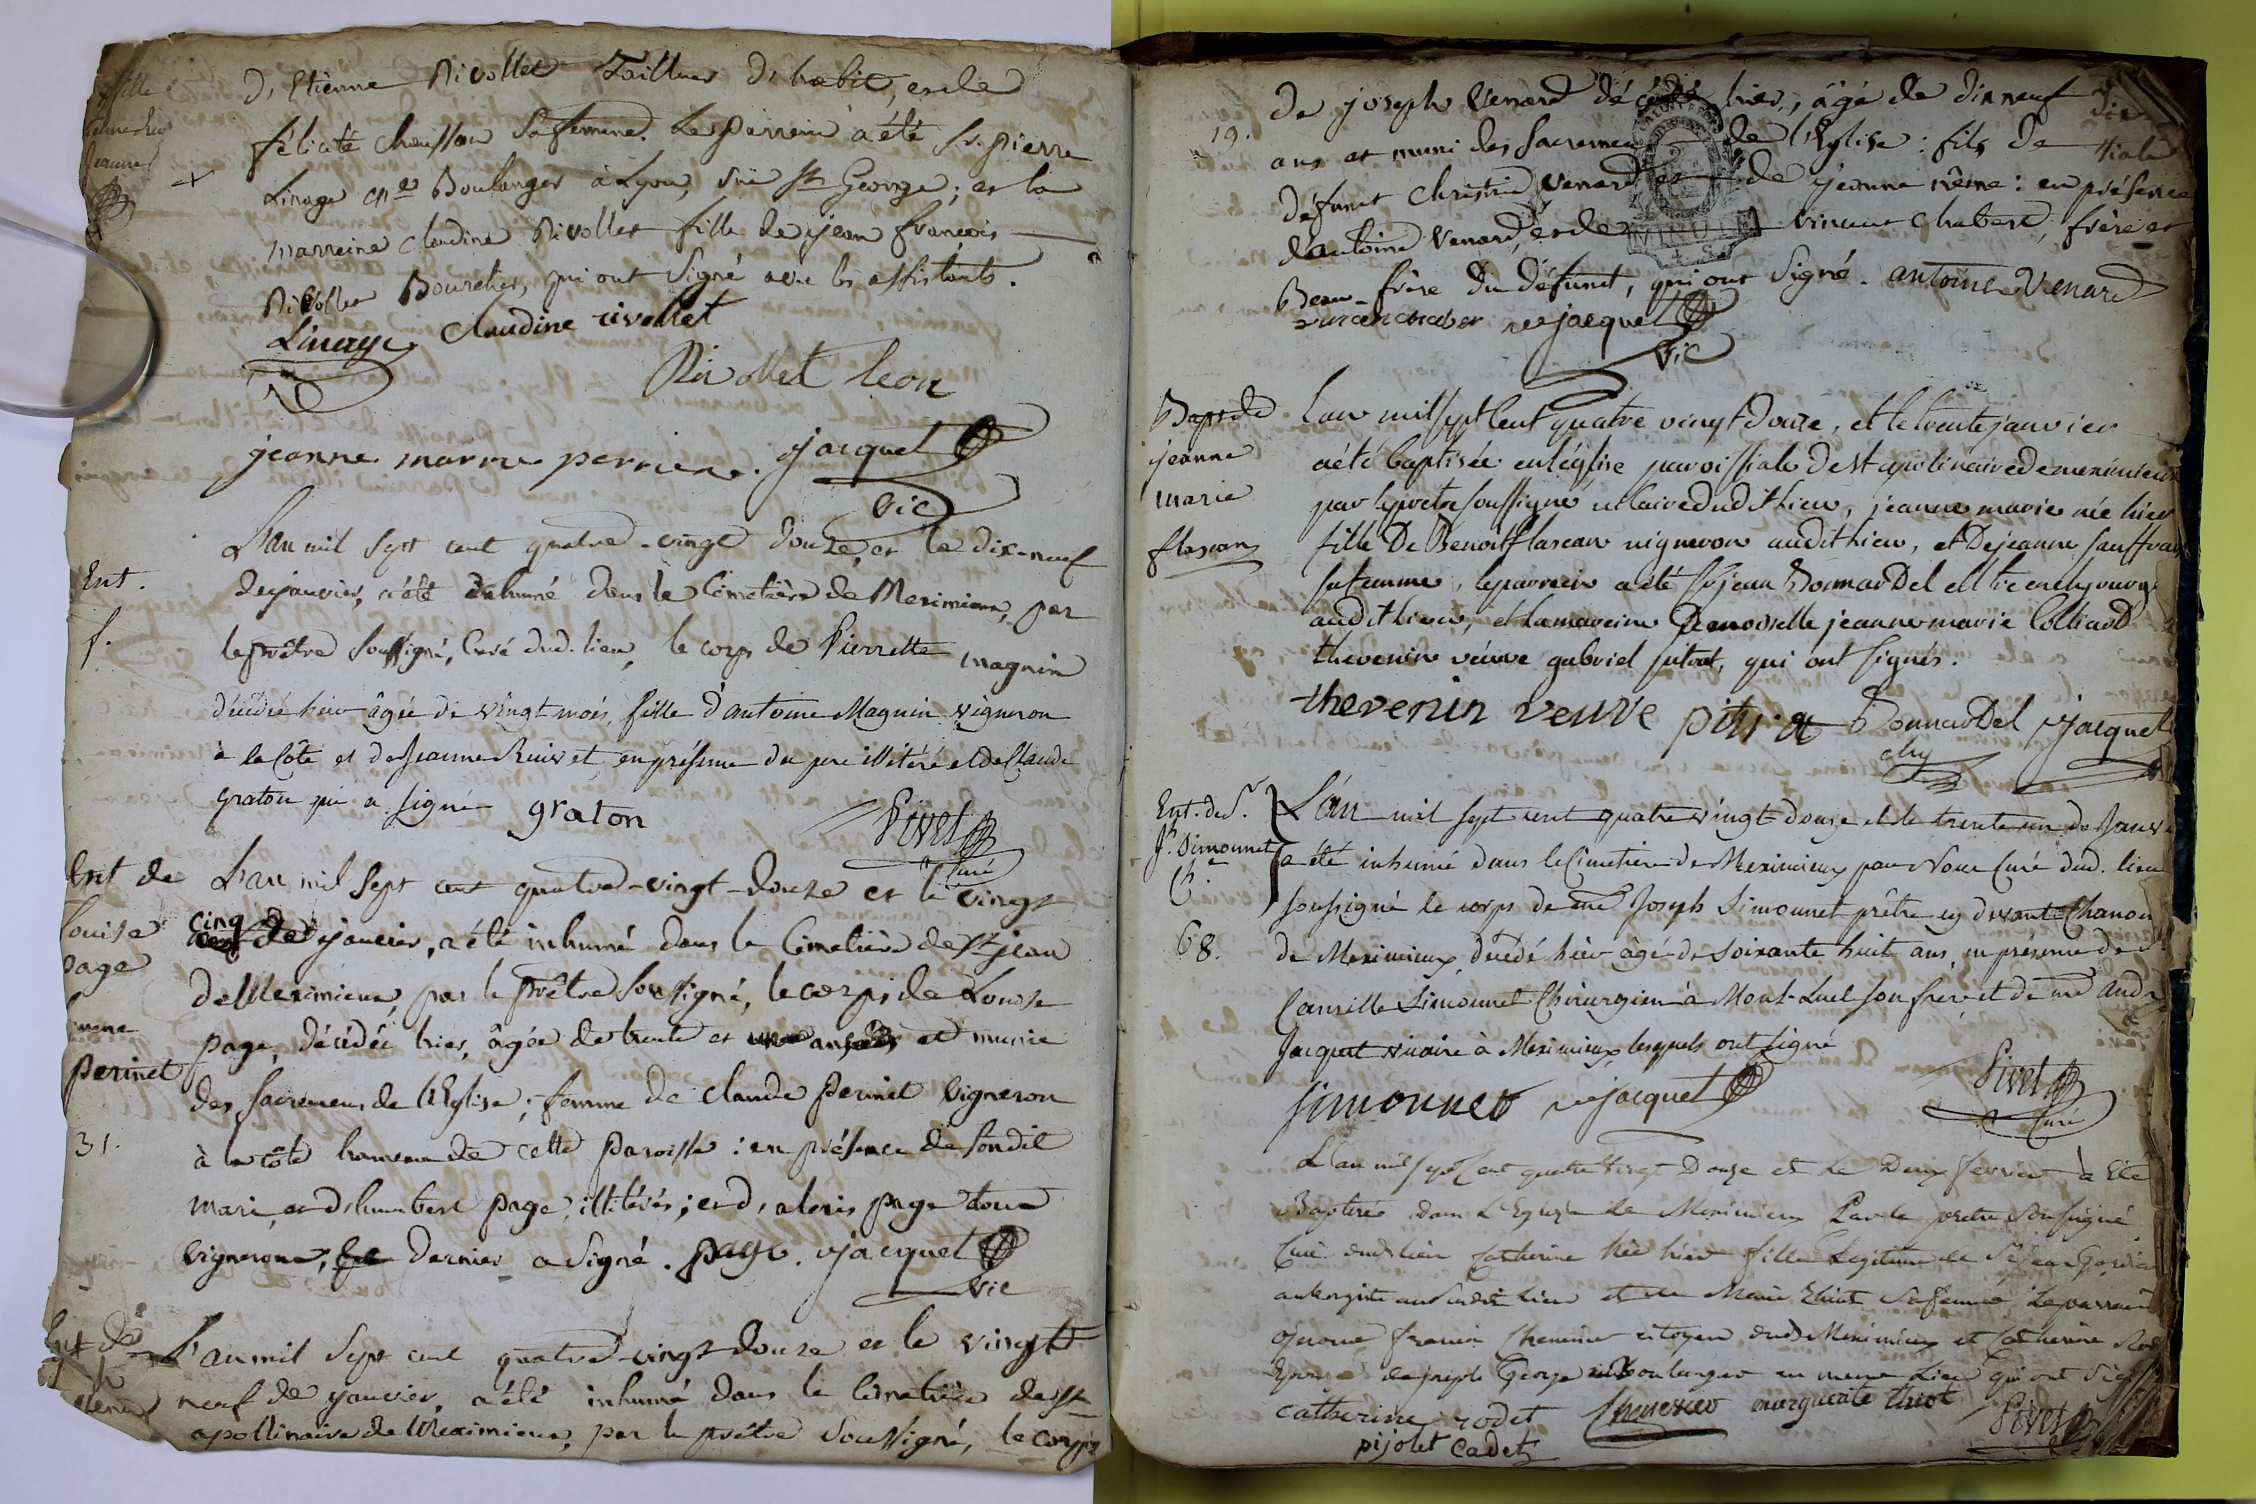 d'etienne Rivollet Tailleur d'habit, et de
félicité chausson sa femme. Le parrein a été Sr. pierre
Linage Me Boulanger à Lyon, rue St George; et la
marreine claudine Rivollet fille de jean françois
Rivollet Boucher, qui ont signé avec les assistants.
Linage claudine rivollet
Rivollet leon
jeanne marrie perrier. jacquet
vic
Ent.
f.
L'an mil sept cent quatre-vingt douze, et le dix-neuf
de janvier, a été inhumé dans le Cimetière de Meximieux, par
le prêtre soussigné, Curé dud. lieu, le corps de Pierrette magnin
décédée hier âgée de vingt mois, fille d'antoine Magnin vigneron
à la Côte et de Jeanne en présence du père illitéré et de Claude
graton qui a signé graton
Pivet
Curé
Ent de
Louise
page
femme
perinet
31.
L'an mil sept cent quatre-vingt-douze et le vingt
cinq de janvier, a été inhumé dans le Cimetière de St jean
de Meximieux, par le prêtre soussigné, le corps de Louise
page, décédée hier, âgée de trente et un ans et munie
des sacremens de l'Eglise; femme de claude perinet vigneron
à la côte hameau de cette paroisse: en présence de sondit
mari, et d'humbert page, illitérés; et d'alexis page tous
vignerons, le dernier a signé. page. jacquet
vic
Ent de
L'an mil sept cent quatre-vingt-douze et le vingt
neuf de janvier, a été inhumé dans le cimetière de St
apollinaire de Meximieux, par le prêtre soussigné, le corps
19.
de joseph Venard décédé hier, âgé de dix neuf
ans et muni des sacremens de l'Eglise: fils de
défunt Christin Venard et de jeanne même: en présence
d'antoine Venard, et de vincent Chabert, frère et
Beau-frère du défunt, qui ont signé. antoine Venard
jacquet
vic
Bapt de
jeanne
marie
flascan
L'an mil sept Cent quatre vingt douze, et le trente janvier
a été baptisée en l'église paroissiale de st apolinaire de meximieux
par le pretre soussigné vicaire dudit lieu, jeanne marie née hier
fille De Benoit flascan vigneron audit lieu, et De jeanne
sa femme, le parrein a été Sr jean Bonnardel
audit lieu, et la mareine Demoiselle jeanne marie Colliard
thevenin véuve gabriel pitrat, qui ont signés.
thevenin veuve pitra Bonnardel jacquet
Ent. de Sr.
Jh. Simonnet
68.
L'an mil sept cent quatre vingt douze et le trente un de Janvier
a été inhumé dans le Cimetière de Meximieux par Nous Curé dud. lieu
soussigné le corps de Me Joseph Simonnet prêtre cy devant Chanoine
de Meximieux, décédé hier âgé de soixante huit ans, en présence de
Camille Simonnet Chirurgien à Mont-Luel son frere et de Me
Jacquet vicaire à Meximieux lesquels ont signé
Simonnet jacquet Pivet
Curé
L'an mil sept Cent quatre vingt Douze et Le Deux fevrier à Eté
Baptisée Dans L'Eglise de Meximieux Par le pretre Soussigné
Curé dud. lieu Catherine Née hier fille Legitime de Sr jean
aubergiste audit lieu et de Marie thiot sa femme, Le parrain
françois Chenevier citoyen dud. Meximieux et Catherine
Epouse de joseph George Boulanger au meme Lieu qui ont
catherine rodet Chenevier marguerite thiot Pivet
pijolet cadet